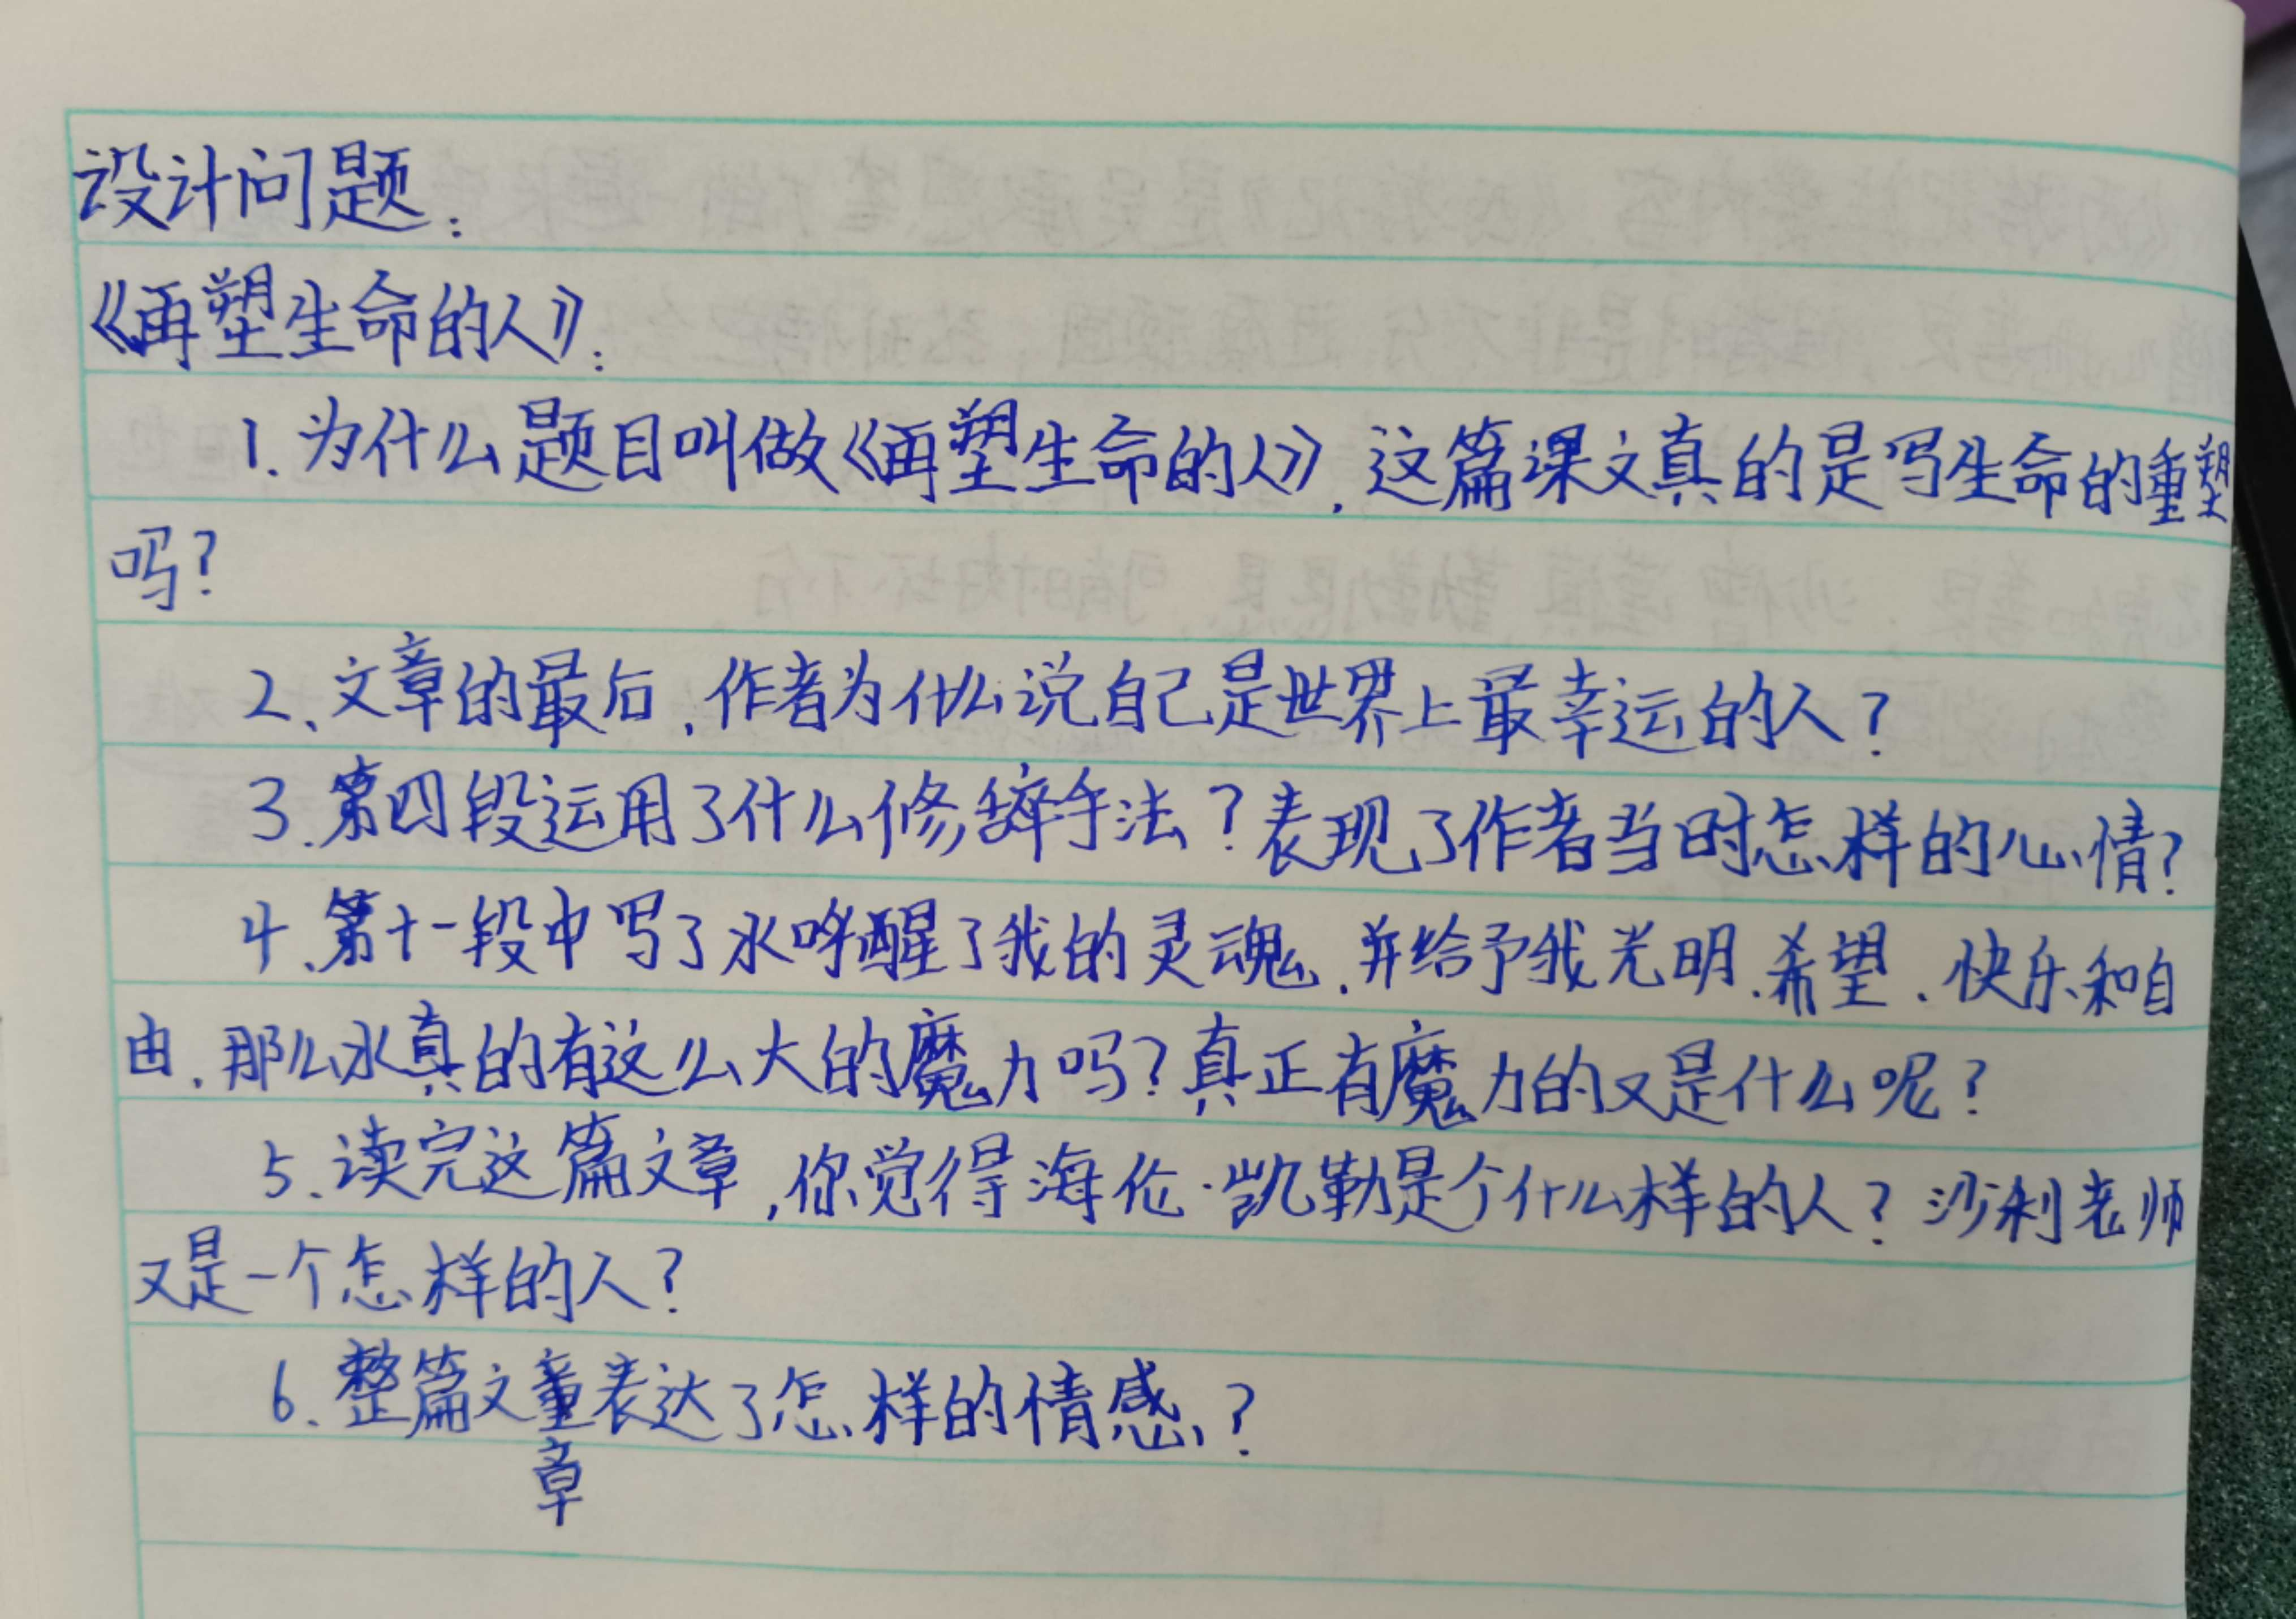 设计问题：
《再塑生命的人》：
1.为什么题目叫做《再塑生命的人》,这篇课文真的是写生命的重塑
吗?
2、文章的最后,作者为什么说自己是世界上最幸运的人?
3.第四段运用了什么修辞手法?表现了作者当时怎样的心情?
4、第十一段中写了水唤醒了我的灵魂,并给予我光明、希望、快乐和自
由,那么水真的有这么大的魔力吗?真正有魔力的又是什么呢?
5、读完这篇文章,你觉得海伦·凯勒是个什么样的人?沙利老师
又是一个怎样的人?
6、整篇文童表达了怎样的情感?
章